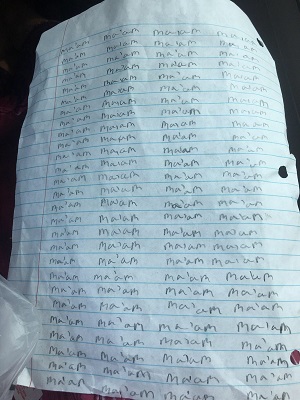 ma'am ma'am ma'am ma'am
ma'am ma'am ma'am ma'am
ma'am ma'am ma'am ma'am
ma'am ma'am ma'am ma'am
ma'am ma'am ma'am ma'am
ma'am ma'am ma'am ma'am
ma'am ma'am ma'am ma'am
ma'am ma'am ma'am ma'am
ma'am ma'am ma'am ma'am
ma'am ma'am ma'am ma'am
ma'am ma'am ma'am ma'am
ma'am ma'am ma'am ma'am
ma'am ma'am ma'am ma'am
ma'am ma'am ma'am ma'am
ma'am ma'am ma'am ma'am
ma'am ma'am ma'am ma'am
ma'am ma'am ma'am ma'am
ma'am ma'am ma'am ma'am
ma'am ma'am ma'am ma'am
ma'am ma'am ma'am ma'am
ma'am ma'am ma'am ma'am
ma'am ma'am ma'am ma'am
ma'am ma'am ma'am ma'am
ma'am ma'am ma'am ma'am
ma'am ma'am ma'am ma'am